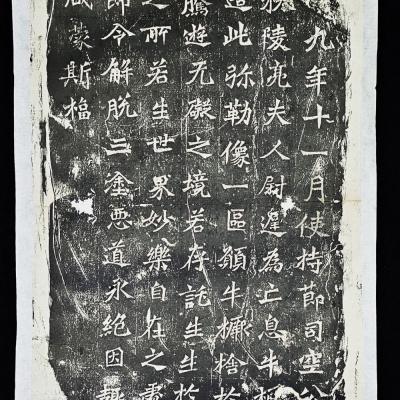 九年十一月使持節司空公
穆陵亮夫人尉遲為亡息牛橛
造此弥勒像一區願牛橛捨於
騰遊无礙之境若存託生生於
之所若生世界妙樂自在之處
即令解脫三塗惡道永絕因趣
咸蒙斯福